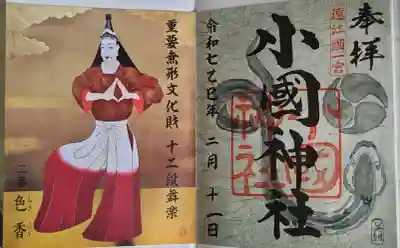 重要無形文化財 十二段舞楽
二番
色香
しきこう
奉拝
遠江國一宮
小國神社
令和七乙巳年 二月 十一日